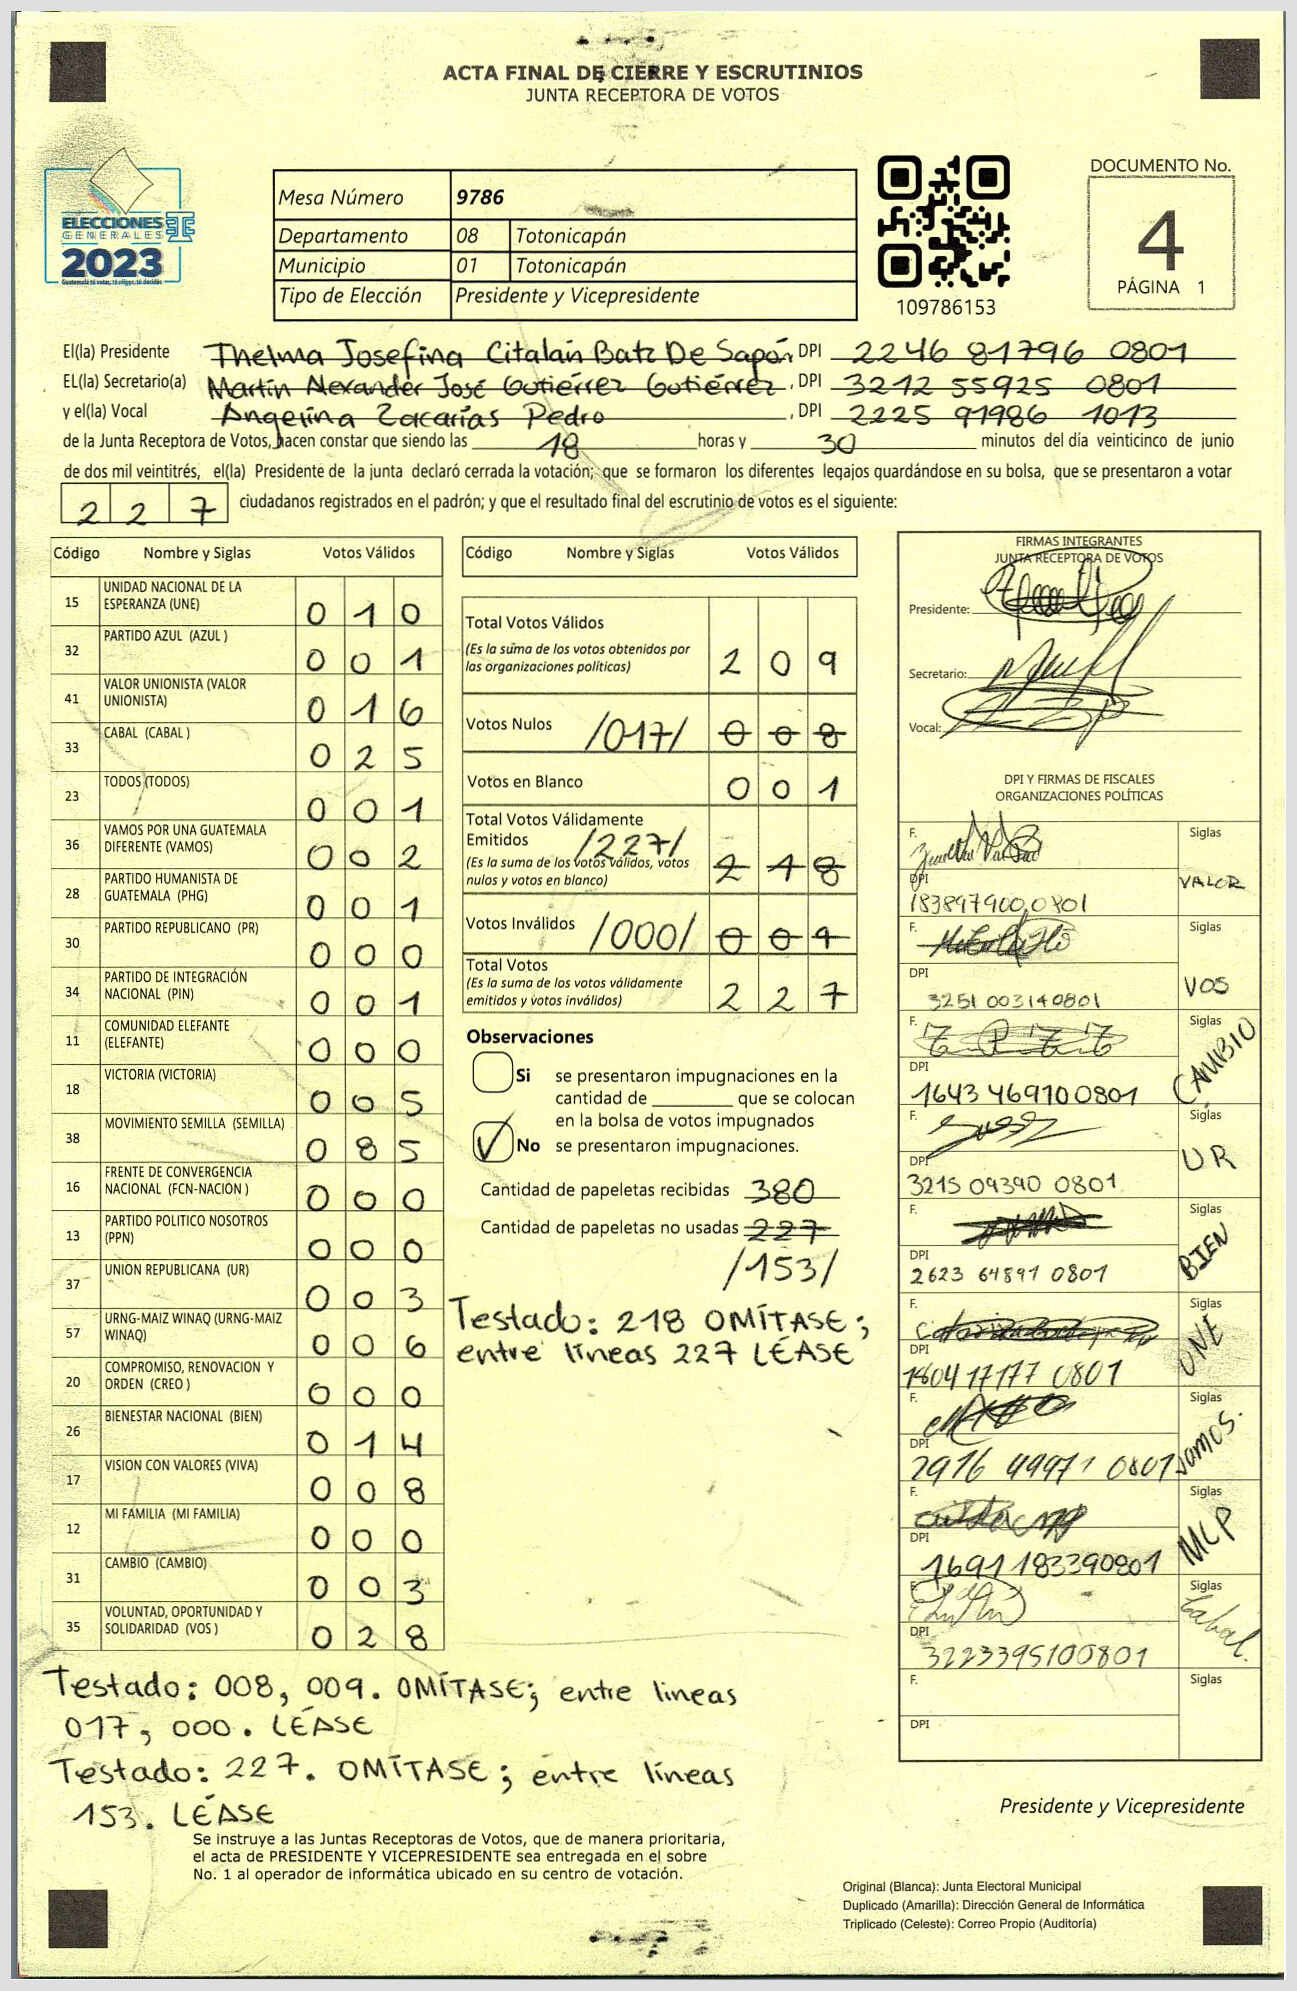 ACTA FINAL DE CIERRE Y ESCRUTINIOS
JUNTA RECEPTORA DE VOTOS
ELECCIONES
GENERALES
2023
Mesa Número 9786
Departamento 08 Totonicapán
Municipio 01 Totonicapán
Tipo de Elección Presidente y Vicepresidente
109786153
DOCUMENTO No.
4
PÁGINA 1
El(la) Presidente Thelma Josefina Citalán Batz De Sapón, DPI 2246 81796 0801
EL(la) Secretario(a) Martín Alexander José Gutiérrez Gutiérrez, DPI 3212 55925 0801
y el(la) Vocal Angelina Zacarías Pedro, DPI 2225 91986 1013
de la Junta Receptora de Votos, hacen constar que siendo las 18 horas y 30 minutos del día veinticinco de junio
de dos mil veintitrés, el(la) Presidente de la junta declaró cerrada la votación; que se formaron los diferentes legajos guardándose en su bolsa, que se presentaron a votar
2 2 7 ciudadanos registrados en el padrón; y que el resultado final del escrutinio de votos es el siguiente:
Código Nombre y Siglas Votos Válidos
15 UNIDAD NACIONAL DE LA ESPERANZA (UNE) 0 1 0
32 PARTIDO AZUL (AZUL ) 0 0 1
41 VALOR UNIONISTA (VALOR UNIONISTA) 0 1 6
33 CABAL (CABAL ) 0 2 5
23 TODOS (TODOS) 0 0 1
36 VAMOS POR UNA GUATEMALA DIFERENTE (VAMOS) 0 0 2
28 PARTIDO HUMANISTA DE GUATEMALA (PHG) 0 0 1
30 PARTIDO REPUBLICANO (PR) 0 0 0
34 PARTIDO DE INTEGRACIÓN NACIONAL (PIN) 0 0 1
11 COMUNIDAD ELEFANTE (ELEFANTE) 0 0 0
18 VICTORIA (VICTORIA) 0 0 5
38 MOVIMIENTO SEMILLA (SEMILLA) 0 8 5
16 FRENTE DE CONVERGENCIA NACIONAL (FCN-NACION ) 0 0 0
13 PARTIDO POLITICO NOSOTROS (PPN) 0 0 0
37 UNION REPUBLICANA (UR) 0 0 3
57 URNG-MAIZ WINAQ (URNG-MAIZ WINAQ) 0 0 6
20 COMPROMISO, RENOVACION Y ORDEN (CREO ) 0 0 0
26 BIENESTAR NACIONAL (BIEN) 0 1 4
17 VISION CON VALORES (VIVA) 0 0 8
12 MI FAMILIA (MI FAMILIA) 0 0 0
31 CAMBIO (CAMBIO) 0 0 3
35 VOLUNTAD, OPORTUNIDAD Y SOLIDARIDAD (VOS ) 0 2 8
Código Nombre y Siglas Votos Válidos
Total Votos Válidos
(Es la suma de los votos obtenidos por
las organizaciones políticas) 2 0 9
Votos Nulos /017/ 0 0 8
Votos en Blanco 0 0 1
Total Votos Válidamente
Emitidos /227/
(Es la suma de los votos válidos, votos
nulos y votos en blanco) 2 1 8
Votos Inválidos /000/ 0 0 9
Total Votos
(Es la suma de los votos válidamente
emitidos y votos inválidos) 2 2 7
Observaciones
Si se presentaron impugnaciones en la
cantidad de ________ que se colocan
en la bolsa de votos impugnados
No se presentaron impugnaciones.
Cantidad de papeletas recibidas 380
Cantidad de papeletas no usadas 227
/153/
Testado: 218 OMÍTASE;
entre líneas 227 LÉASE
FIRMAS INTEGRANTES
JUNTA RECEPTORA DE VOTOS
Presidente:
Secretario:
Vocal:
DPI Y FIRMAS DE FISCALES
ORGANIZACIONES POLÍTICAS
F. Siglas
DPI VALOR
183897900,0801
F. Siglas
DPI VOS
3251 003140801
F. Siglas
DPI CAMBIO
1643 469700801
F. Siglas
DPI UR
3215 09390 0801
F. Siglas
DPI BIEN
2623 64891 0801
F. Siglas
DPI UNE
1804 17177 0801
F. Siglas
DPI Vamos.
2916 49971 0801
F. Siglas
DPI MLP
1691 183390801
F. Siglas
DPI Cabal.
3223395100801
F. Siglas
DPI
Testado: 008, 009. OMÍTASE; entre líneas
017, 000. LÉASE
Testado: 227. OMÍTASE; entre líneas
153. LÉASE
Presidente y Vicepresidente
Se instruye a las Juntas Receptoras de Votos, que de manera prioritaria,
el acta de PRESIDENTE Y VICEPRESIDENTE sea entregada en el sobre
No. 1 al operador de informática ubicado en su centro de votación.
Original (Blanca): Junta Electoral Municipal
Duplicado (Amarilla): Dirección General de Informática
Triplicado (Celeste): Correo Propio (Auditoría)